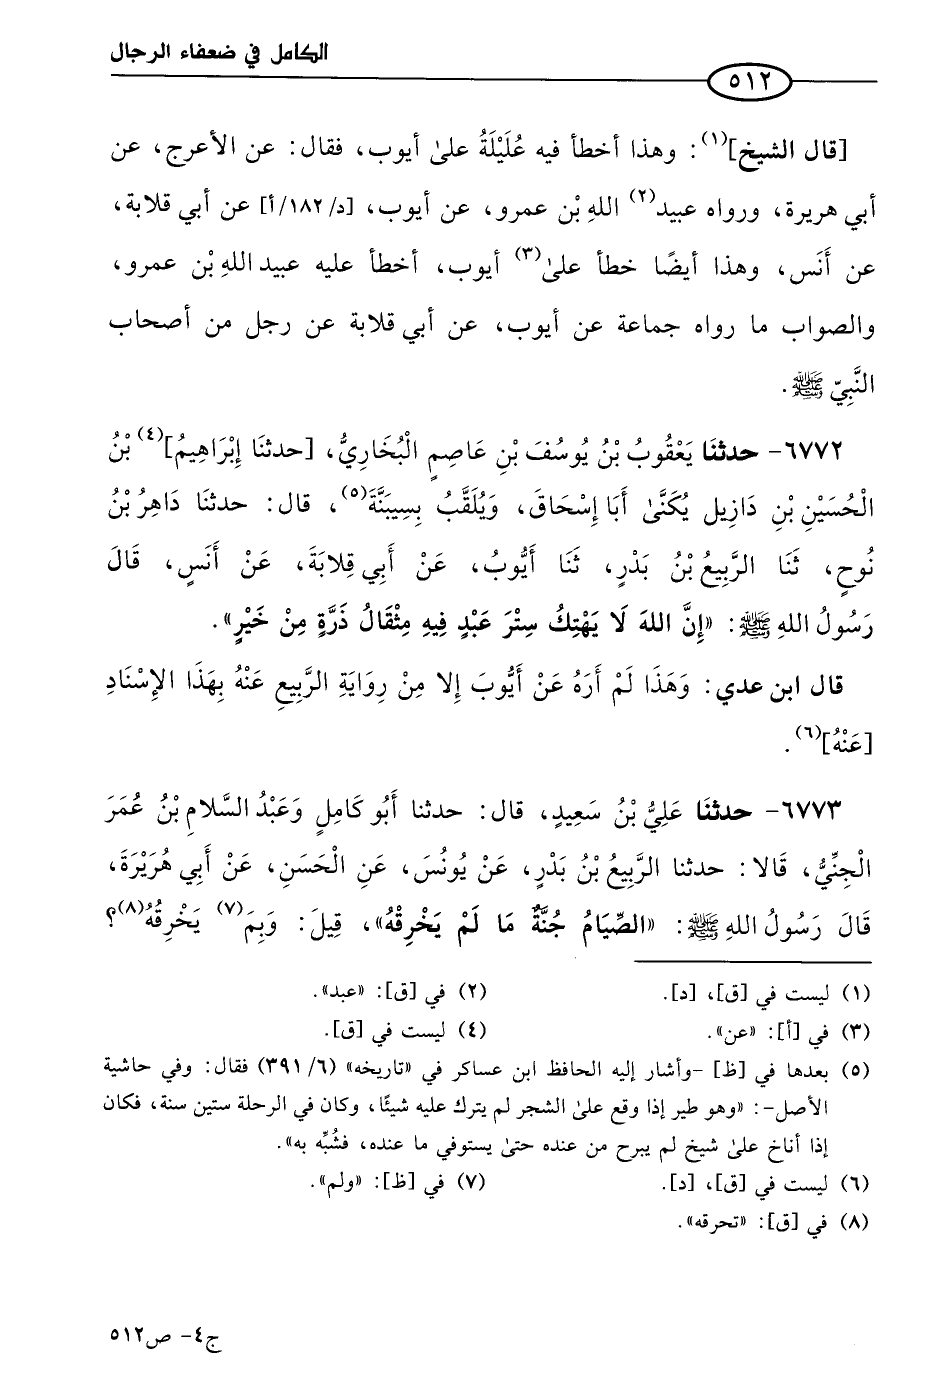 الكامل في ضعفاء الرجال
٥١٢
[قال الشيخ](١): وهذا أخطأ فيه عُلَيْلَةُ علىٰ أيوب، فقال: عن الأعرج، عن
أبي هريرة، ورواه عبيد(٢) اللهِ بْن عمرو، عن أيوب، [د/ ١٨٢/أ] عن أبي قلابة،
عن أَنَس، وهذا أيضًا خطأ علىٰ(٣) أيوب، أخطأ عليه عبيد اللهِ بْن عمرو،
والصواب ما رواه جماعة عن أيوب، عن أبي قلابة عن رجل من أصحاب
النَّبِيّ ﷺ.
٦٧٧٢- حدثنَا يَعْقُوبُ بْنُ يُوسُفَ بْنِ عَاصِمٍ الْبُخَارِيُّ، [حدثنَا إِبْرَاهِيمُ](٤) بْنُ
الْحُسَيْنِ بْنِ دَازِيل يُكَنَّىٰ أَبَا إِسْحَاقَ، وَيُلَقَّبُ بِسِيبَنَّةَ(٥)، قال: حدثنَا دَاهِرُ بْنُ
نُوحٍ، ثَنَا الرَّبِيعُ بْنُ بَدْرٍ، ثَنَا أَيُّوبُ، عَنْ أَبِي قِلابَةَ، عَنْ أَنَسٍ، قَالَ
رَسُولُ اللهِ ﷺ: «إِنَّ اللهَ لَا يَهْتِكُ سِتْرَ عَبْدٍ فِيهِ مِثْقَالُ ذَرَّةٍ مِنْ خَيْرٍ».
قال ابن عدي: وَهَذَا لَمْ أَرَهُ عَنْ أَيُّوبَ إِلا مِنْ رِوَايَةِ الرَّبِيعِ عَنْهُ بِهَذَا الإِسْنَادِ
[عَنْهُ](٦).
٦٧٧٣- حدثنَا عَلِيُّ بْنُ سَعِيدٍ، قال: حدثنا أَبُو كَامِلٍ وَعَبْدُ السَّلامِ بْنُ عُمَرَ
الْجِنِّيُّ، قَالا: حدثنا الرَّبِيعُ بْنُ بَدْرٍ، عَنْ يُونُسَ، عَنِ الْحَسَنِ، عَنْ أَبِي هُرَيْرَةَ،
قَالَ رَسُولُ اللهِ ﷺ: «الصِّيَامُ جُنَّةٌ مَا لَمْ يَخْرِقْهُ»، قِيلَ: وَبِمَ(٧) يَخْرِقُهُ(٨)؟
(١) ليست في [ق]، [د].
(٢) في [ق]: «عبد».
(٣) في [أ]: «عن».
(٤) ليست في [ق].
(٥) بعدها في [ظ] -وأشار إليه الحافظ ابن عساكر في «تاريخه» (٦/ ٣٩١) فقال: وفي حاشية
الأصل-: «وهو طير إذا وقع علىٰ الشجر لم يترك عليه شيئًا، وكان في الرحلة ستين سنة، فكان
إذا أناخ علىٰ شيخ لم يبرح من عنده حتىٰ يستوفي ما عنده، فشُبِّه به».
(٦) ليست في [ق]، [د].
(٧) في [ظ]: «ولم».
(٨) في [ق]: «تحرقه».
ج٤- ص٥١٢